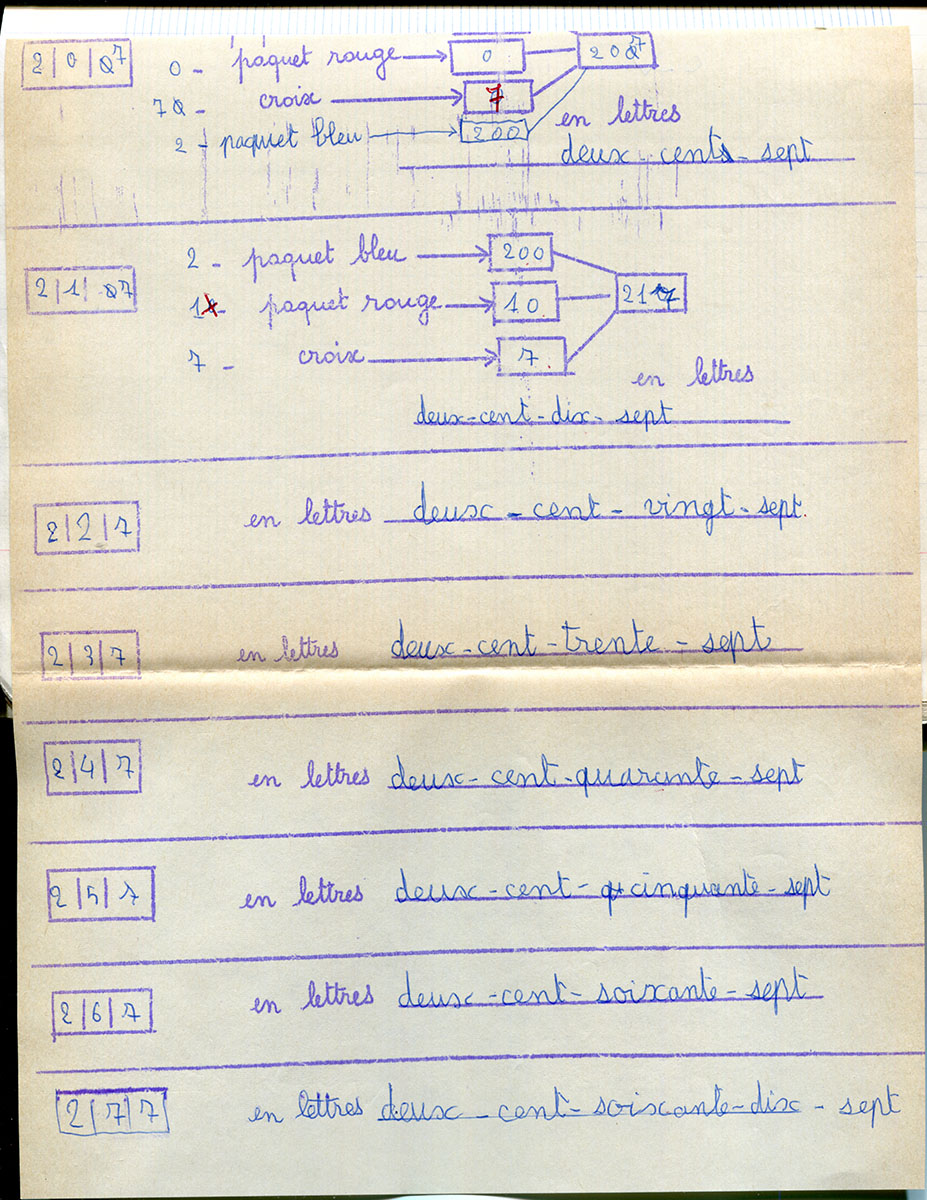 2 | 0 | 7
0 - paquet rouge → 0
207
7 - croix → 7
2 - paquet bleu → 200
en lettres
deux - cent - sept
2 | 1 | 7
2 - paquet bleu → 200
1 - paquet rouge → 10
217
7 - croix → 7
en lettres
deux-cent-dix-sept
2 | 2 | 7 en lettres deux - cent - vingt - sept.
2 | 3 | 7 en lettres deux - cent - trente - sept
2 | 4 | 7 en lettres deux - cent - quarante - sept
2 | 5 | 7 en lettres deux - cent - cinquante - sept
2 | 6 | 7 en lettres deux - cent - soixante - sept
2 | 7 | 7 en lettres deux - cent - soixante - dix - sept